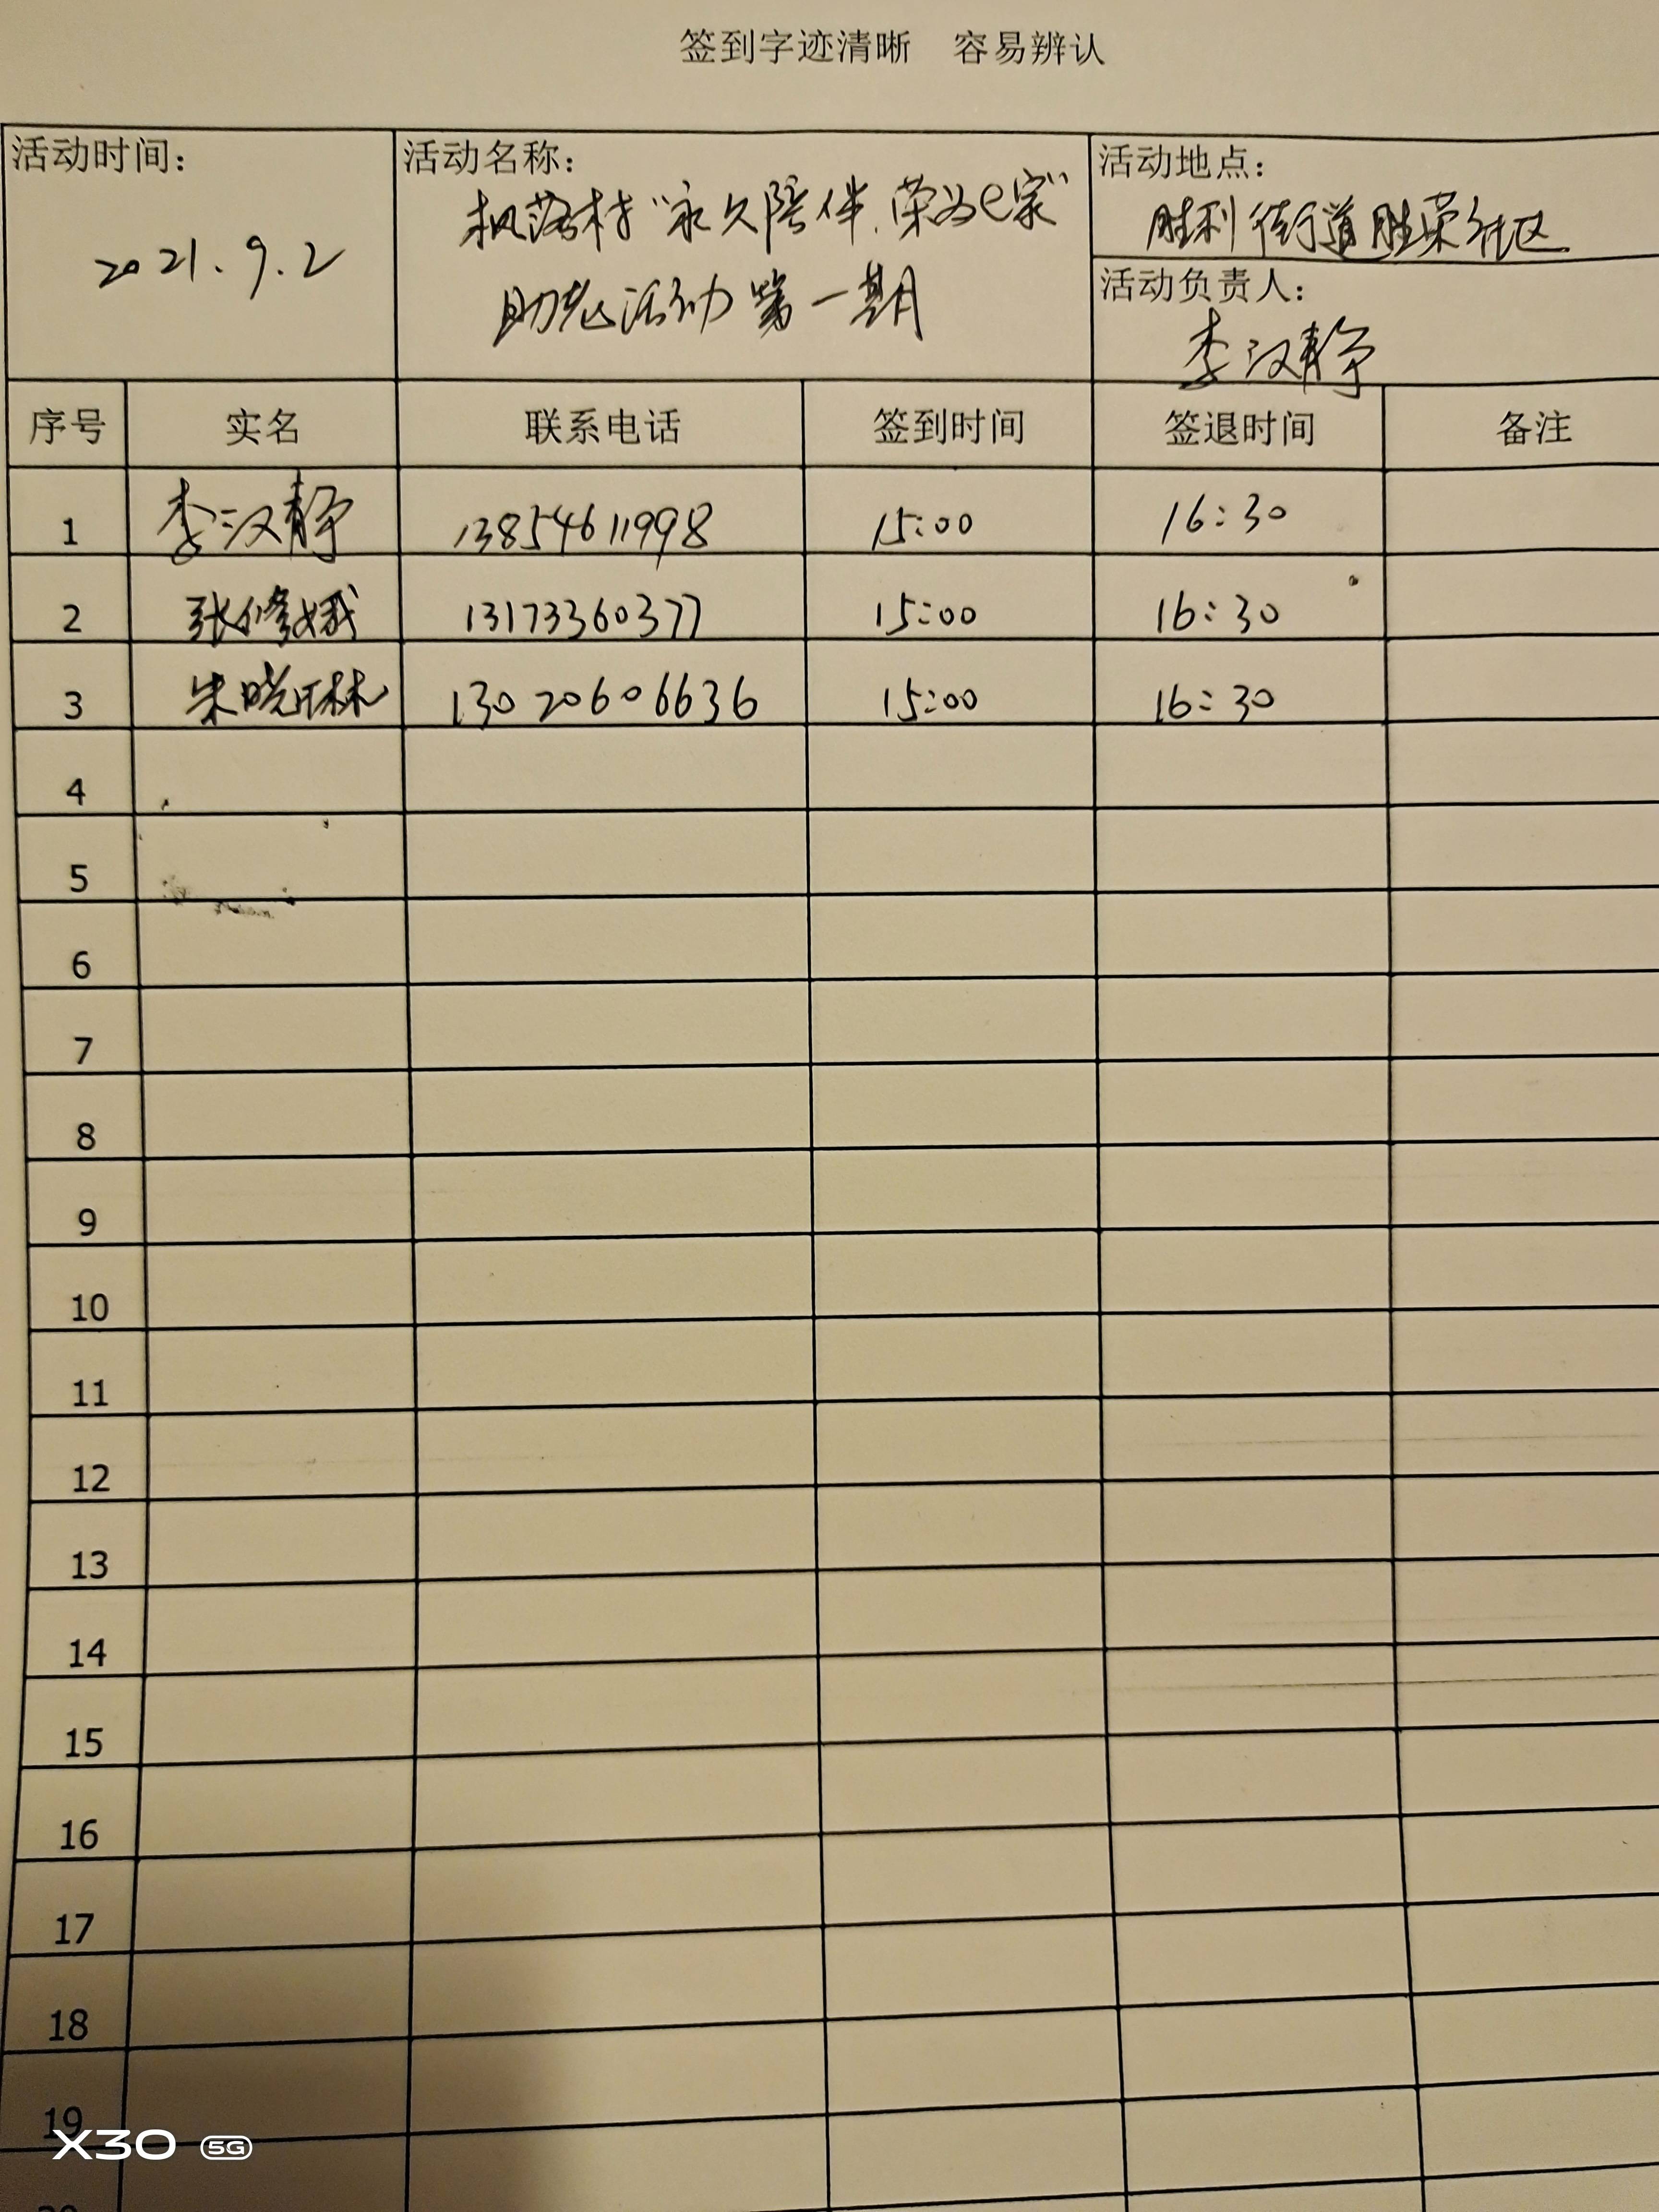 签到字迹清晰 容易辨认
活动时间：
2021.9.2
活动名称：
枫落村“永久陪伴.荣为e家”
助老活动第一期
活动地点：
胜利街道胜荣社区
活动负责人：
李汉静
序号 实名 联系电话 签到时间 签退时间 备注
1 李汉静 13854611998 15:00 16:30
2 张修娥 13173360377 15:00 16:30
3 朱晓琳 13020606636 15:00 16:30
4
5
6
7
8
9
10
11
12
13
14
15
16
17
18
19
X30 5G